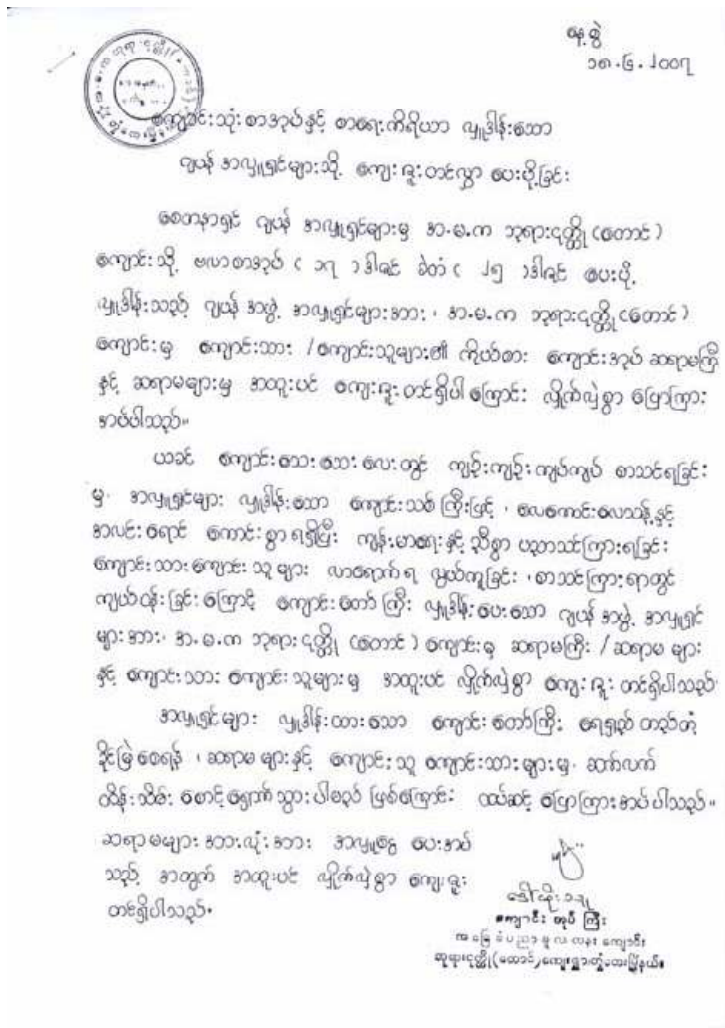 နေ့စွဲ
၁၈.၆.၂၀၀၇
ကျောင်းသုံးစာအုပ်နှင့် စာရေးကိရိယာ လှူဒါန်းသော
ဂျပန် အလှူရှင်များသို့ ကျေးဇူးတင်လွှာ ပေးပို့ခြင်း
စေတနာရှင် ဂျပန် အလှူရှင်များမှ အ.မ.က ဘုရားငုတ္တို (တောင်)
ကျောင်းသို့ ဗလာစာအုပ် ( ၁၇ ) ဒါဇင် ခဲတံ ( ၂၅ ) ဒါဇင် ပေးပို့
လှူဒါန်းသည့် ဂျပန် အဖွဲ့ အလှူရှင်များအား ၊ အ.မ.က ဘုရားငုတ္တို (တောင်)
ကျောင်းမှ ကျောင်းသား /ကျောင်းသူများ၏ ကိုယ်စား ကျောင်းအုပ် ဆရာမကြီး
နှင့် ဆရာမများမှ အထူးပင် ကျေးဇူးတင်ရှိပါကြောင်း လှိုက်လှဲစွာ ပြောကြား
အပ်ပါသည်။
ယခင် ကျောင်းသေးသေးလေးတွင် ကျဉ်းကျဉ်းကျပ်ကျပ် စာသင်ရခြင်း
မှ အလှူရှင်များ လှူဒါန်းသော ကျောင်းသစ်ကြီးဖြင့် ၊ လေကောင်းလေသန့်နှင့်
အလင်းရောင် ကောင်းစွာရရှိပြီး ကျန်းမာရေးနှင့် ညီစွာ ပညာသင်ကြားရခြင်း
ကျောင်းသားကျောင်းသူများ လာရောက်ရ လွယ်ကူခြင်း ၊ စာသင်ကြားရာတွင်
ကျယ်ဝန်းခြင်းကြောင့် ကျောင်းတော်ကြီး လှူဒါန်းပေးသော ဂျပန် အဖွဲ့ အလှူရှင်
များအား၊ အ.မ.က ဘုရားငုတ္တို (တောင်) ကျောင်းမှ ဆရာမကြီး /ဆရာမ များ
နှင့် ကျောင်းသား ကျောင်းသူများမှ အထူးပင် လှိုက်လှဲစွာ ကျေးဇူး တင်ရှိပါသည်.
အလှူရှင်များ လှူဒါန်းထားသော ကျောင်းတော်ကြီး ရေရှည် တည်တံ့
ခိုင်မြဲစေရန် ၊ ဆရာမများနှင့် ကျောင်းသူ ကျောင်းသားများမှ ဆက်လက်
ထိန်းသိမ်း စောင့်ရှောက်သွားပါမည် ဖြစ်ကြောင်း ထပ်ဆင့် ပြောကြားအပ်ပါသည်။
ဆရာမများ အားလုံးအား အလှူငွေ ပေးအပ်
သည့် အတွက် အထူးပင် လှိုက်လှဲစွာ ကျေးဇူး
တင်ရှိပါသည်.
ကျောင်းအုပ်ကြီး
အခြေခံပညာမူလတန်းကျောင်း